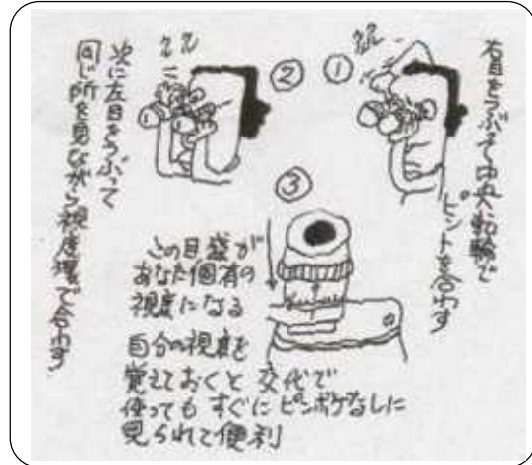 ①
右目をつぶって中央転輪で
ピントを合わす
②
次に左目をつぶって
同じ所を見ながら視度環で合わす
③
この目盛が
あなた個有の
視度になる
自分の視度を
覚えておくと 交代で
使っても すぐに ピンボケなしに
見られて便利